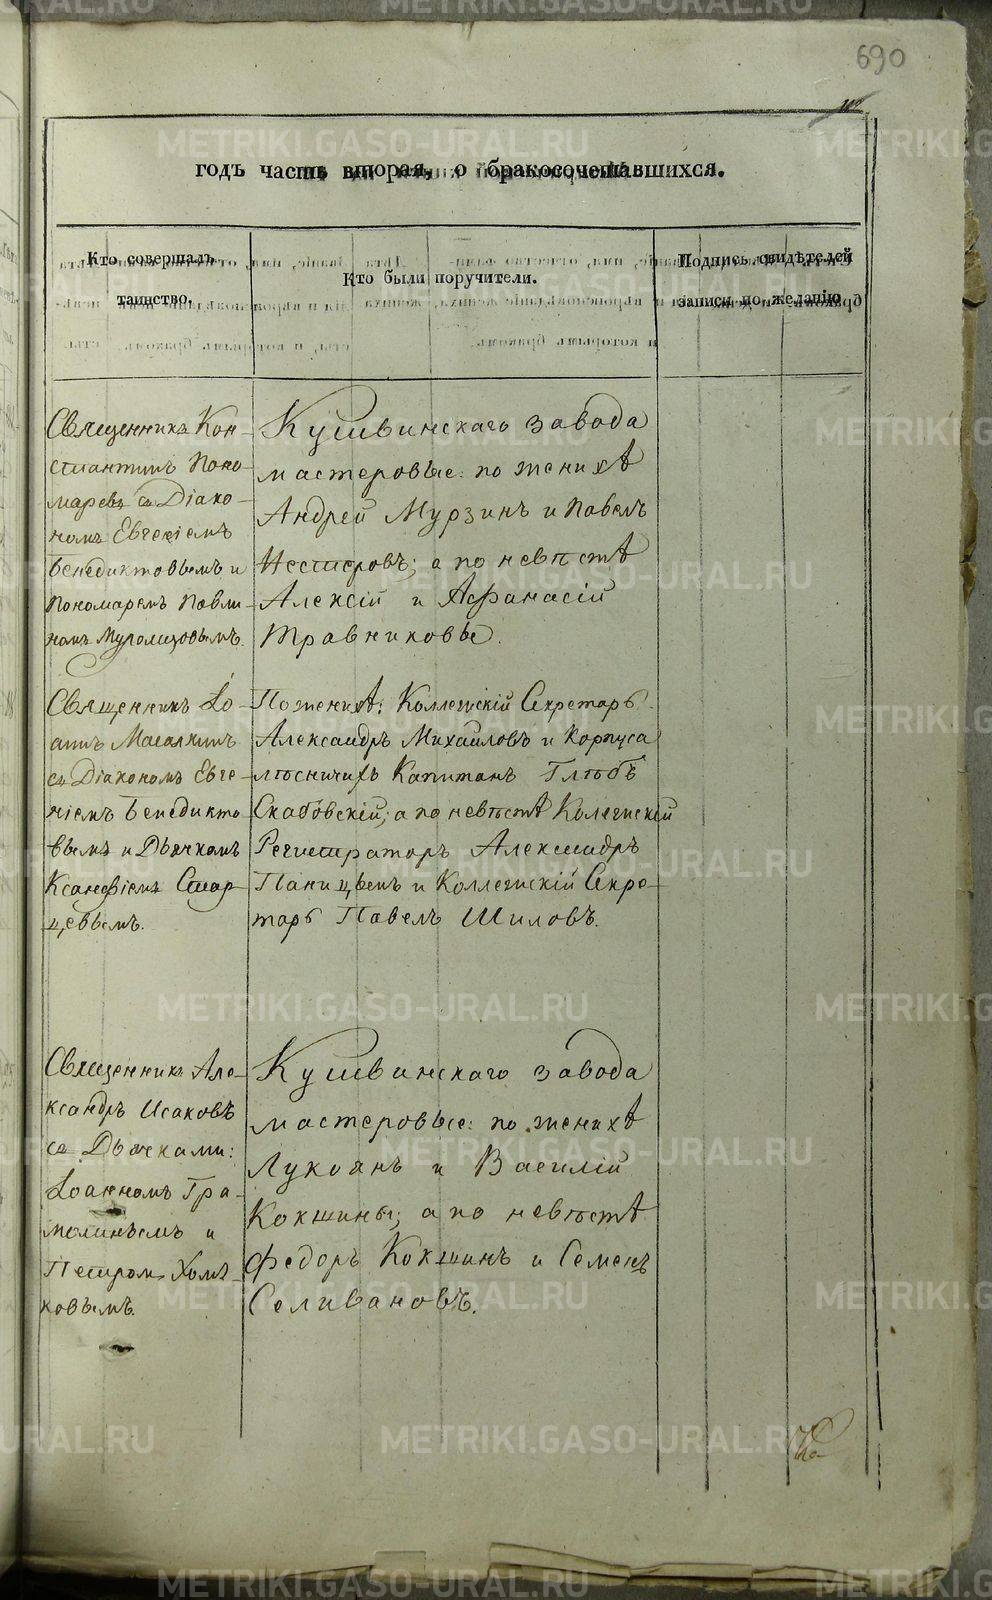 690
годъ часть вторая, о бракосочетавшихся.
Кто совершалъ
таинство.
Кто были поручители.
Подпись свидѣтелей
записи по желанію
Священникъ Кон-
стантинъ Поно-
маревъ съ Діако-
номъ Евгеніемъ
Бенедиктовымъ и
Пономаремъ Павли-
номъ Муромцовымъ.
Кушвинскаго завода
мастеровые: по женихѣ
Андрей Мурзинъ и Павелъ
Нестеровъ; а по невѣстѣ
Алексій и Афанасій
Травниковы.
Священникъ Іо-
аннъ
съ Діакономъ Евге-
ніемъ Бенедикто-
вымъ и Дьячкомъ
Ксанфіемъ Стар-
цевымъ.
По женихѣ: Коллежскій Секретарь
Александръ Михайловъ и Корпуса
лѣсничихъ Капитанъ Глѣбъ
а по невѣстѣ Колежскій
Регистраторъ Александръ
и Коллежскій Секре-
тарь Павелъ Шиловъ.
Священникъ Але-
ксандръ Исаковъ
съ Дьячками:
Іоанномъ Гра-
молинымъ и
Петромъ Хомя-
ковымъ.
Кушвинскаго завода
мастеровые: по женихѣ
Лукоянъ и Василій
Кокшины; а по невѣстѣ
Федоръ Кокшинъ и Семенъ
Селивановъ.
METRIKI.GASO-URAL.RU